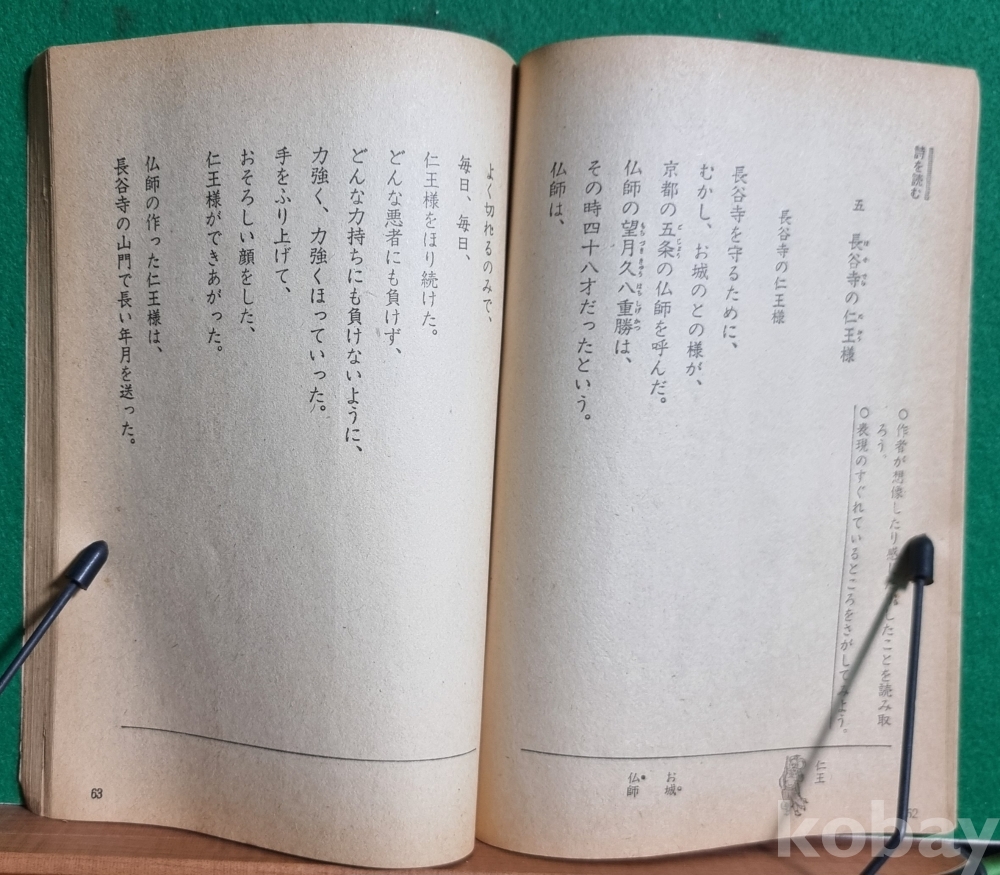 詩を読む
五 長谷寺の仁王様
○作者が想像したり感じたりしたことを読み取
ろう。
○表現のすぐれているところをさがしてみよう。
長谷寺の仁王様
長谷寺を守るために、
むかし、お城のとの様が、
京都の五条の仏師を呼んだ。
仏師の望月久八重勝は、
その時四十八才だったという。
仏師は、
仁王
お城
仏師
よく切れるのみで、
毎日、毎日、
仁王様をほり続けた。
どんな悪者にも負けず、
どんな力持ちにも負けないように、
力強く、力強くほっていった。
手をふり上げて、
おそろしい顔をした、
仁王様ができあがった。
仏師の作った仁王様は、
長谷寺の山門で長い年月を送った。
63
kobay